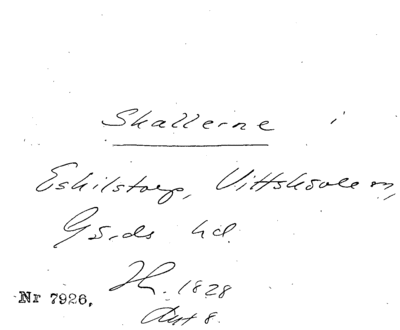 Skallerne i
Eskilstorp, Vittskövle sn,
Gärds hd.
Nr 7926. H. 1828
Ant 8.